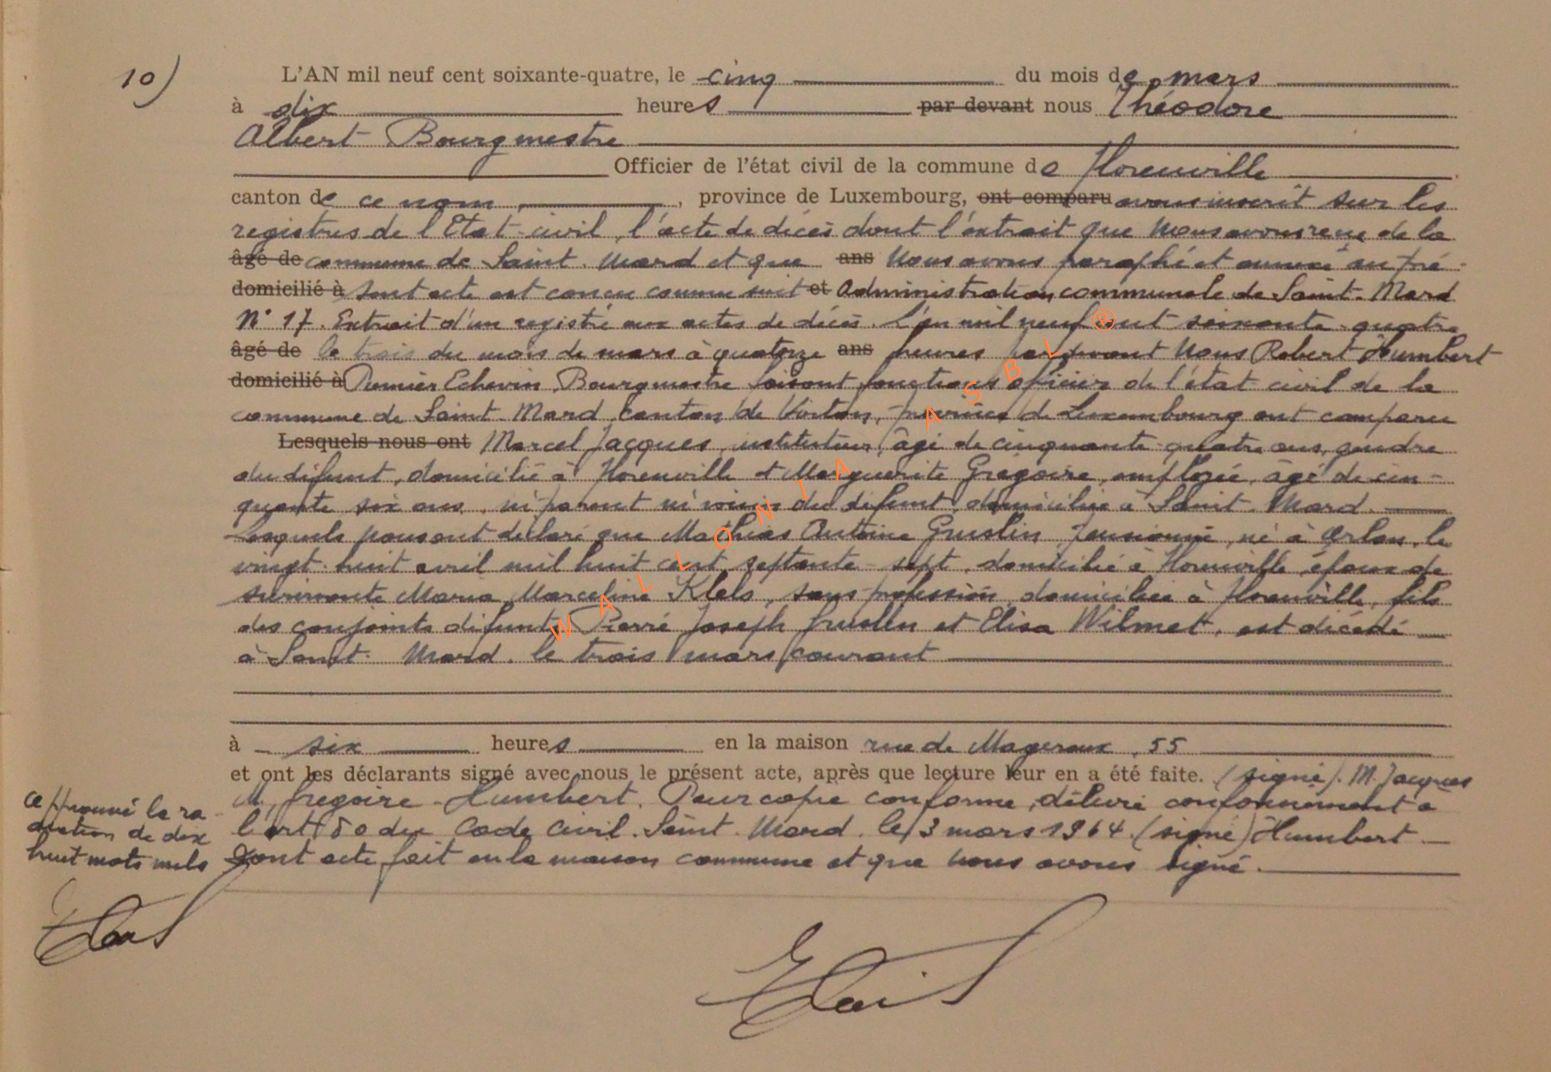 10)
L'AN mil neuf cent soixante-quatre, le cinq du mois de mars
à dix heures par devant nous Théodore
Albert Bourgmestre
Officier de l'état civil de la commune de Florenville
canton de ce nom, province de Luxembourg, ont comparu avons inscrit sur les
registres de l'Etat-civil, l'acte de décès dont l'extrait que Nous avons reçu de la
âgé de commune de Saint-Mard et que ans Nous avons paraphé et annexé au pré-
domicilié à sent acte est conçu comme suit et Administration communale de Saint-Mard
N° 17. Extrait d'un registre aux actes de décès. L'an mil neuf cent soixante-quatre
âgé de le trois du mois de mars à quatorze ans heures par devant Nous Robert Humbert
domicilié à Premier Echevin, Bourgmestre faisant fonctions officier de l'état civil de la
commune de Saint-Mard, Canton de Virton, province de Luxembourg ont comparu
Lesquels nous ont Marcel Jacques, instituteur, âgé de cinquante-quatre ans, gendre
du défunt, domicilié à Florenville et Marguerite Gregoire, employée, âgé de cin-
quante six ans, ni parent ni voisin du défunt, domiciliée à Saint-Mard.
Lesquels nous ont déclaré que Mathias Antoine Gruslin pensionné, né à Arlon, le
vingt-huit avril mil huit cent septante-sept, domicilié à Florenville, époux de
survivante Maria Marceline Klels, sans profession, domiciliée à Florenville, fils
des conjoints défunts Pierre Joseph Gruslin et Elisa Wilmet, est décédé
à Saint-Mard, le trois mars courant
à six heures en la maison rue de Mageroux, 55
et ont les déclarants signé avec nous le présent acte, après que lecture leur en a été faite. (signé). M. Jacques
M. Gregoire - Humbert. Pour copie conforme, délivré conformément à
l'art 80 du Code Civil. Saint-Mard, le 3 mars 1964 (signé) Humbert
Dont acte fait en la maison commune et que nous avons signé.
approuvé la ra-
diation de dix
huit mots nuls
WALLONIA ASBL ®